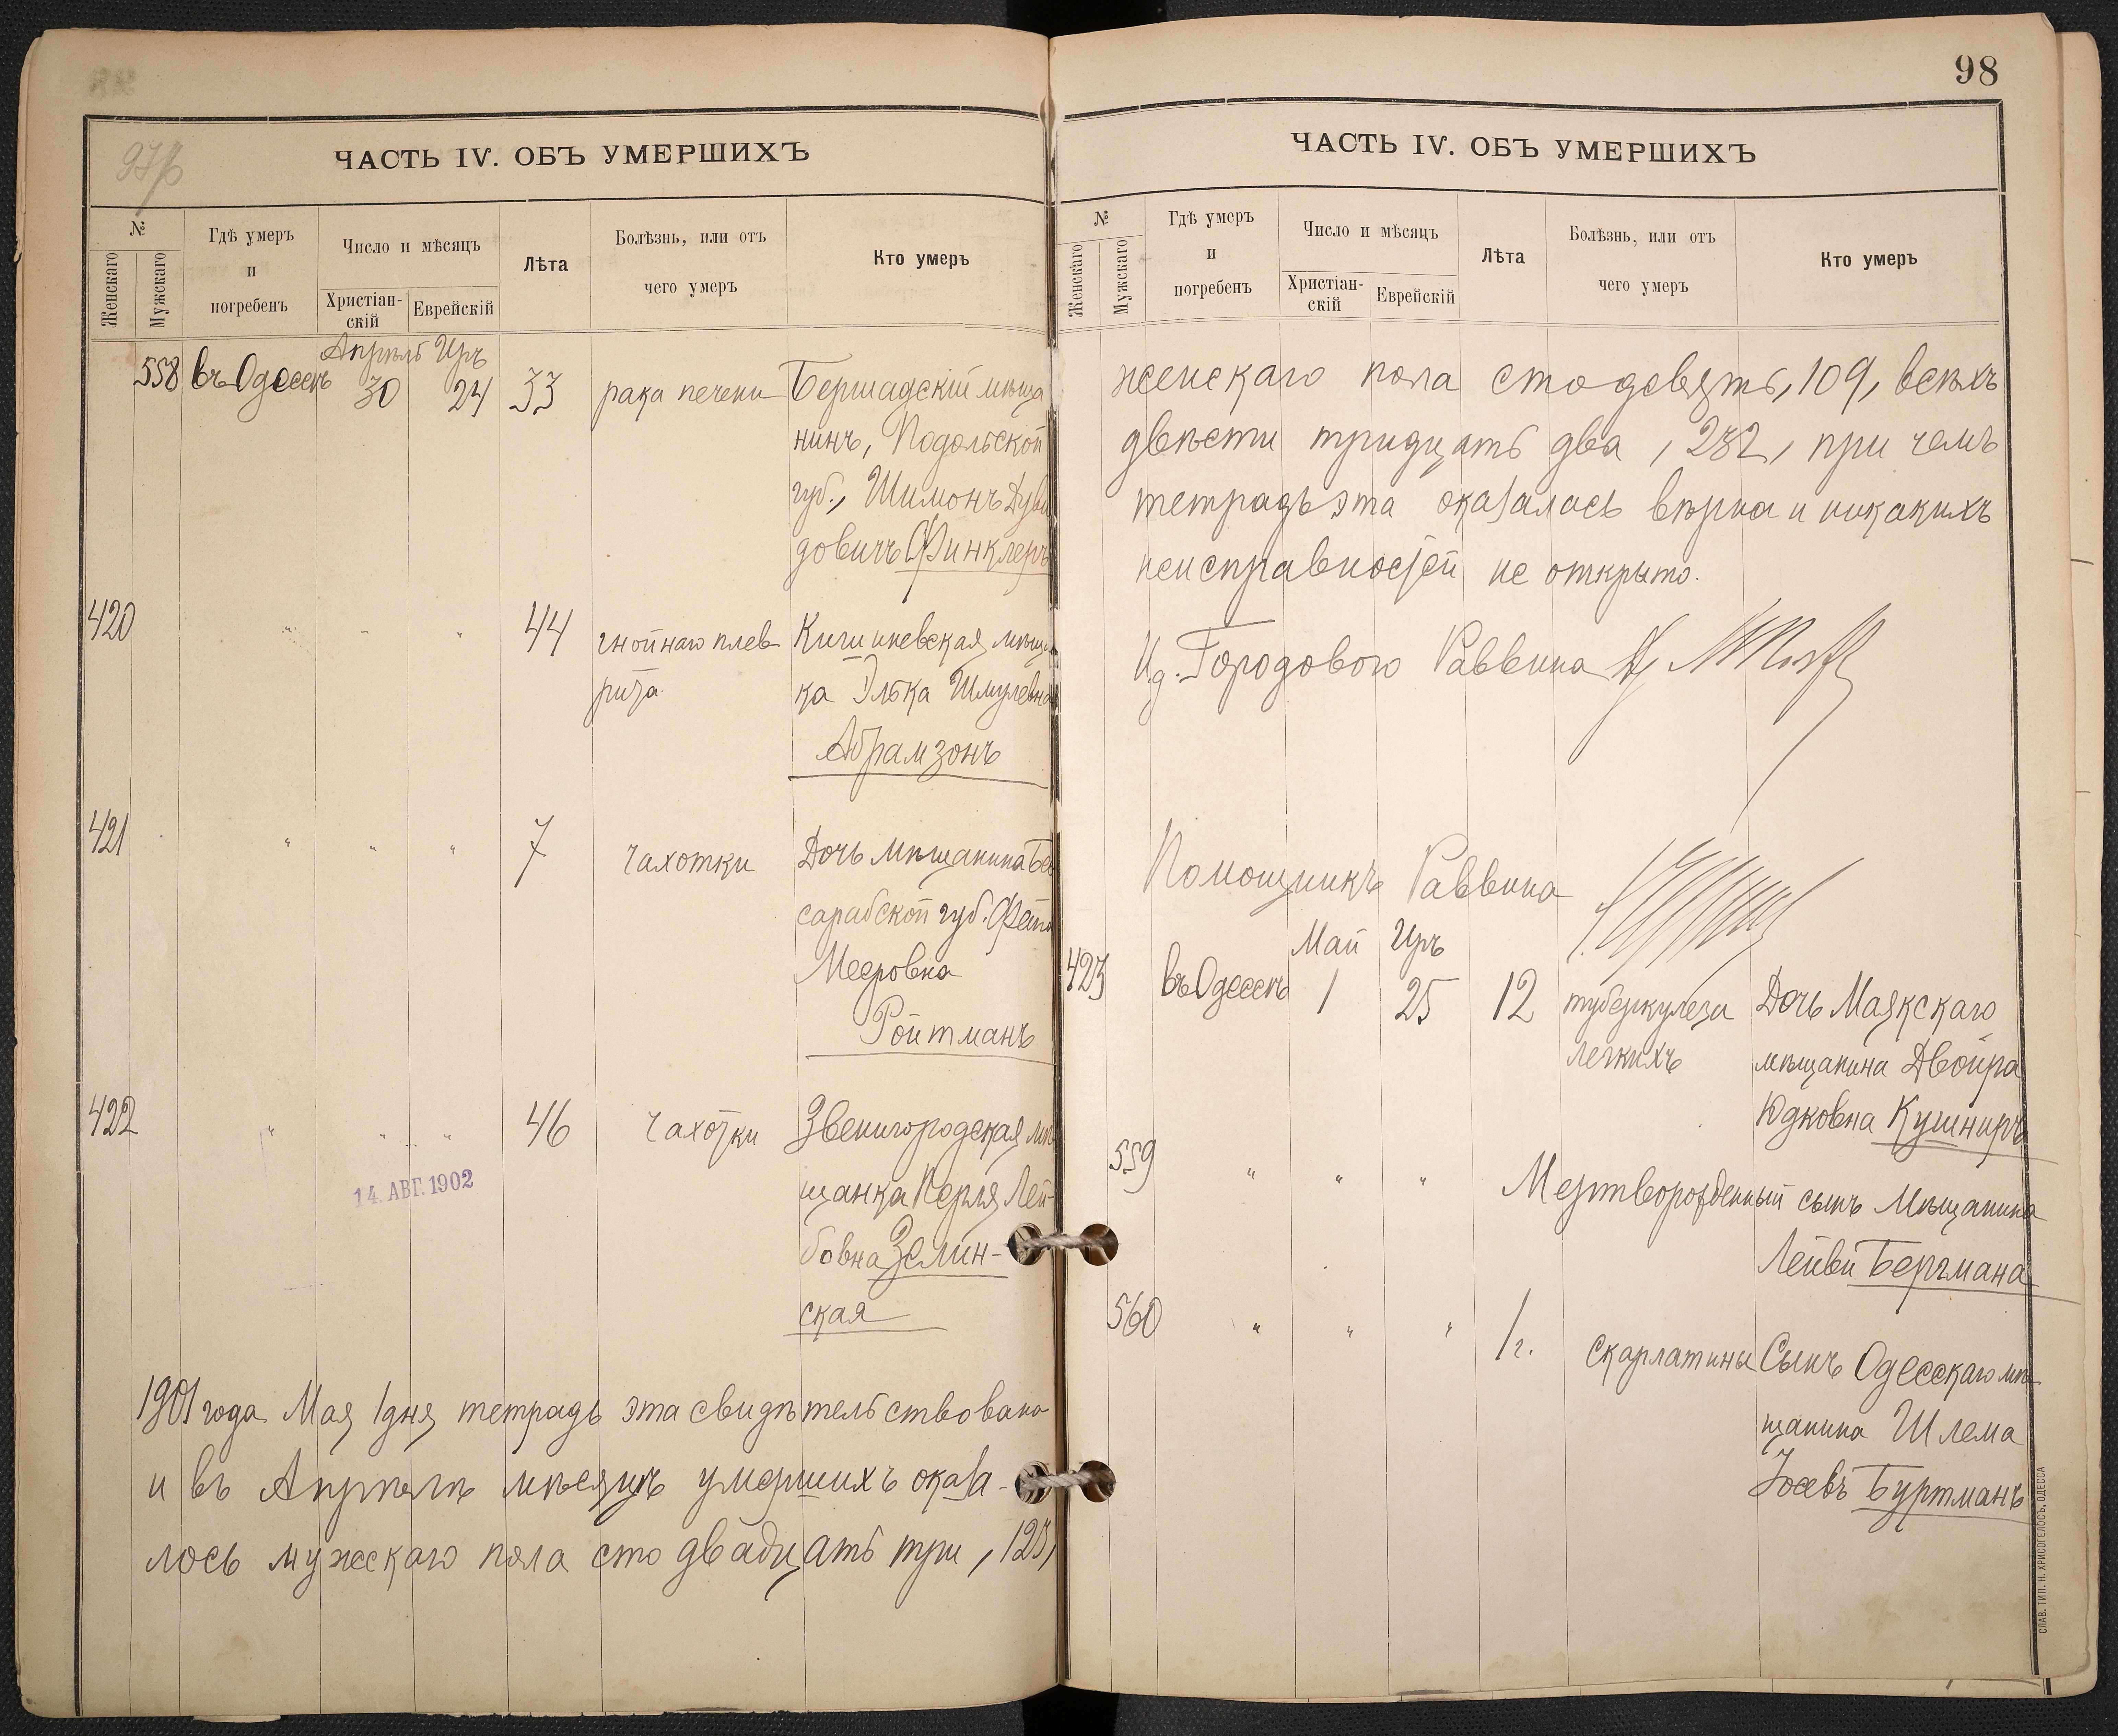 ЧАСТЬ IV. ОБЪ УМЕРШИХЪ
№
Женскаго
Мужскаго
Гдѣ умеръ
и
погребенъ
Число и мѣсяцъ
Христіан-
скій
Еврейскій
Лѣта
Болѣзнь, или отъ
чего умеръ
Кто умеръ
Апрѣль Иръ
558 въ Одессѣ 30 24 33 рака печени Бершадскій мѣща
нинъ, Подольской
губ., Шимонъ Дуви
довичъ Финклеръ
420 " " " 44 гнойнаго плев Кишиневская мѣщан
рита ка Элька Шмулевна
Абрамзонъ
421 " " " 7 чахотки Дочь мѣщанина Бес
сарабской губ. Фейга
Мееровна
Ройтманъ
422 " " " 46 чахотки Звенигородская мѣ
щанка Перля Лей-
14. АВГ. 1902
бовна Зелин-
ская
1901 года Мая 1 дня тетрадь эта свидѣтельствована
и въ Апрѣлѣ мѣсяцѣ умершихъ оказа-
лось мужскаго пола сто двадцать три, 123,
98
ЧАСТЬ IV. ОБЪ УМЕРШИХЪ
№
Женскаго
Мужскаго
Гдѣ умеръ
и
погребенъ
Число и мѣсяцъ
Христіан-
скій
Еврейскій
Лѣта
Болѣзнь, или отъ
чего умеръ
Кто умеръ
женскаго пола сто девять, 109, всѣхъ
двѣсти тридцать два, 232, при чемъ
тетрадь эта оказалась вѣрна и никакихъ
неисправностей не открыто.
И. д. Городового Раввина
Помощникъ Раввина
Май Иръ
423 въ Одессѣ 1 25 12 туберкулеза Дочь Маякскаго
легкихъ мѣщанина Двойра
Юдковна Кушниръ
559 " " " Мертворожденный сынъ мѣщанина
Лейви Бергмана
560 " " " 1 г. скарлатины Сынъ Одесскаго мѣ
щанина Шлема
Іосевъ Буртманъ
СЛАВ. ТИП. Н. ХРИСОГЕЛОСЪ, ОДЕССА